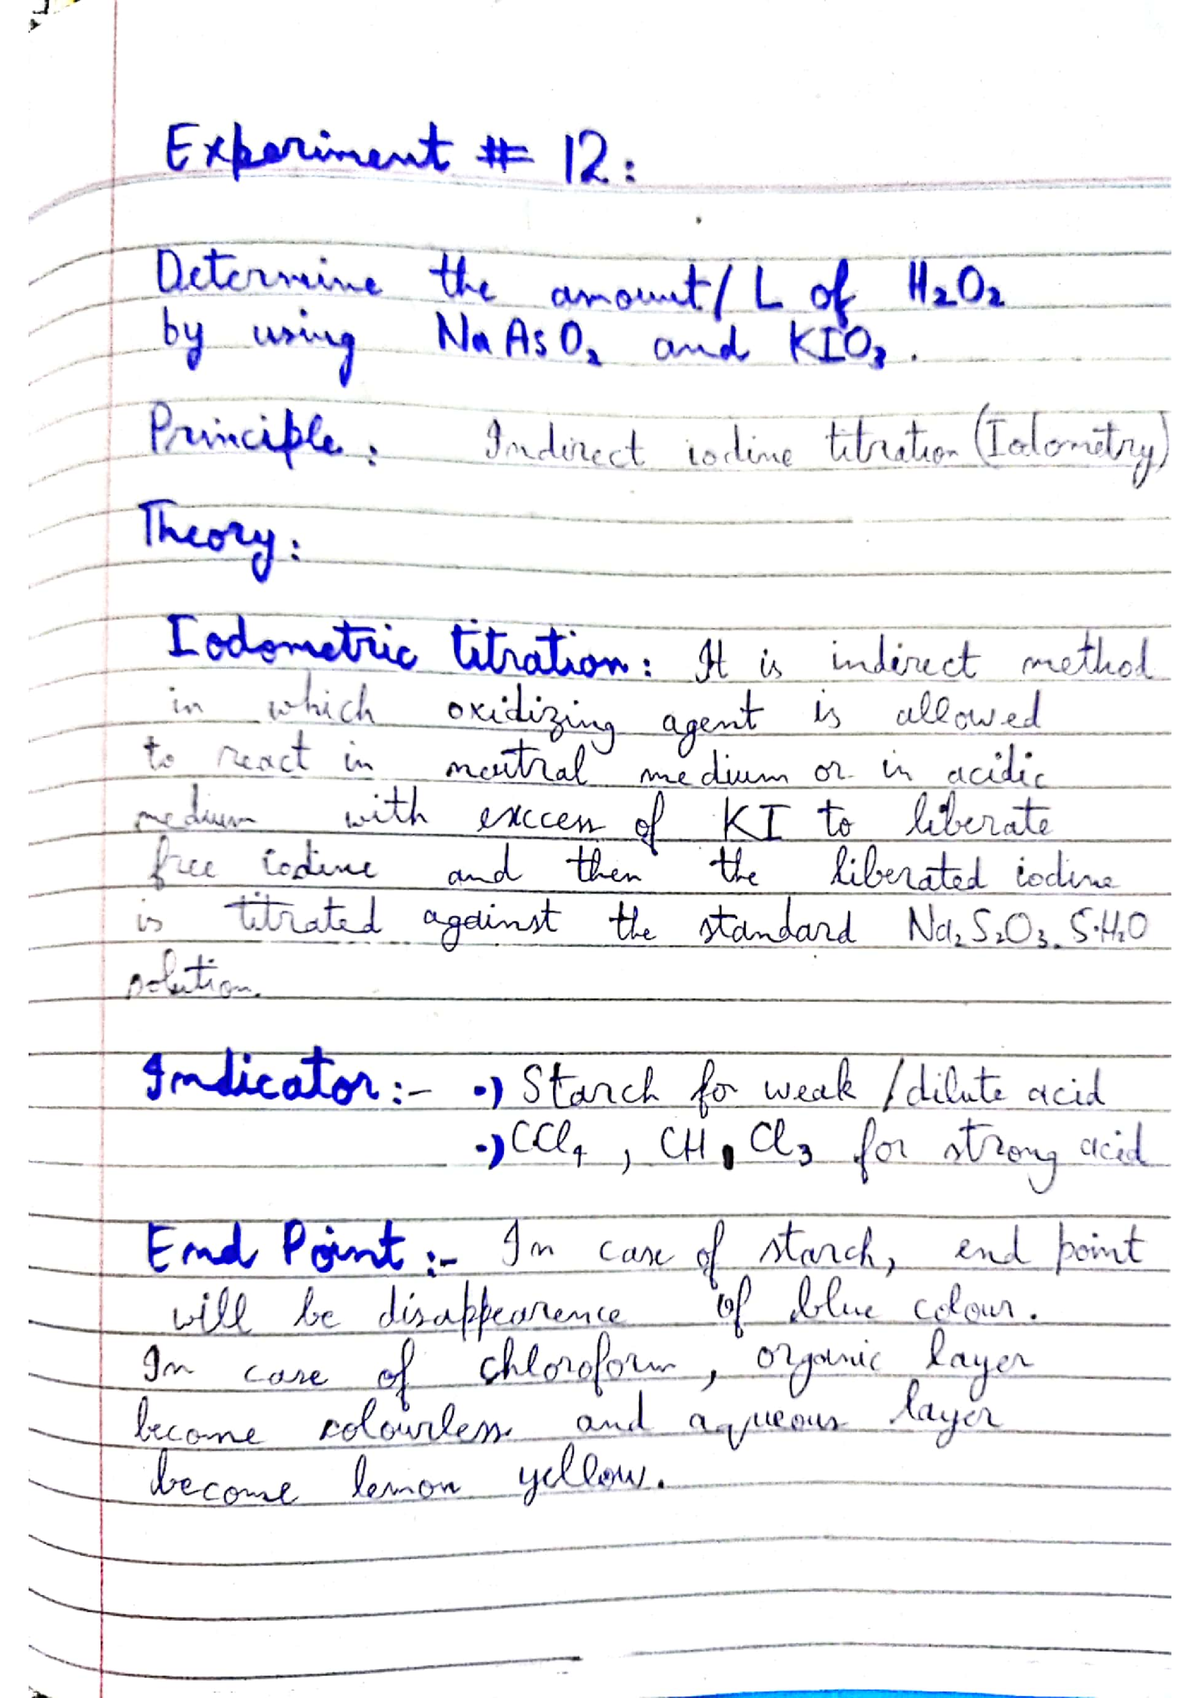 Experiment # 12:
Determine the amount/L of H₂O₂
by using NaAsO₂ and KIO₃.
Principle: Indirect iodine titration (Iodometry)
Theory:
Iodometric titration: It is indirect method
in which oxidizing agent is allowed
to react in neutral medium or in acidic
medium with exccess of KI to liberate
free iodine and then the liberated iodine
is titrated against the standard Na₂S₂O₃.5.H₂O
solution.
Indicator:- •) Starch for weak / dilute acid
•) CCl₄, CHCl₃ for strong acid
End Point:- In case of starch, end point
will be disappearence of blue colour.
In case of chloroform, organic layer
become colourless and aqueous layer
become lemon yellow.